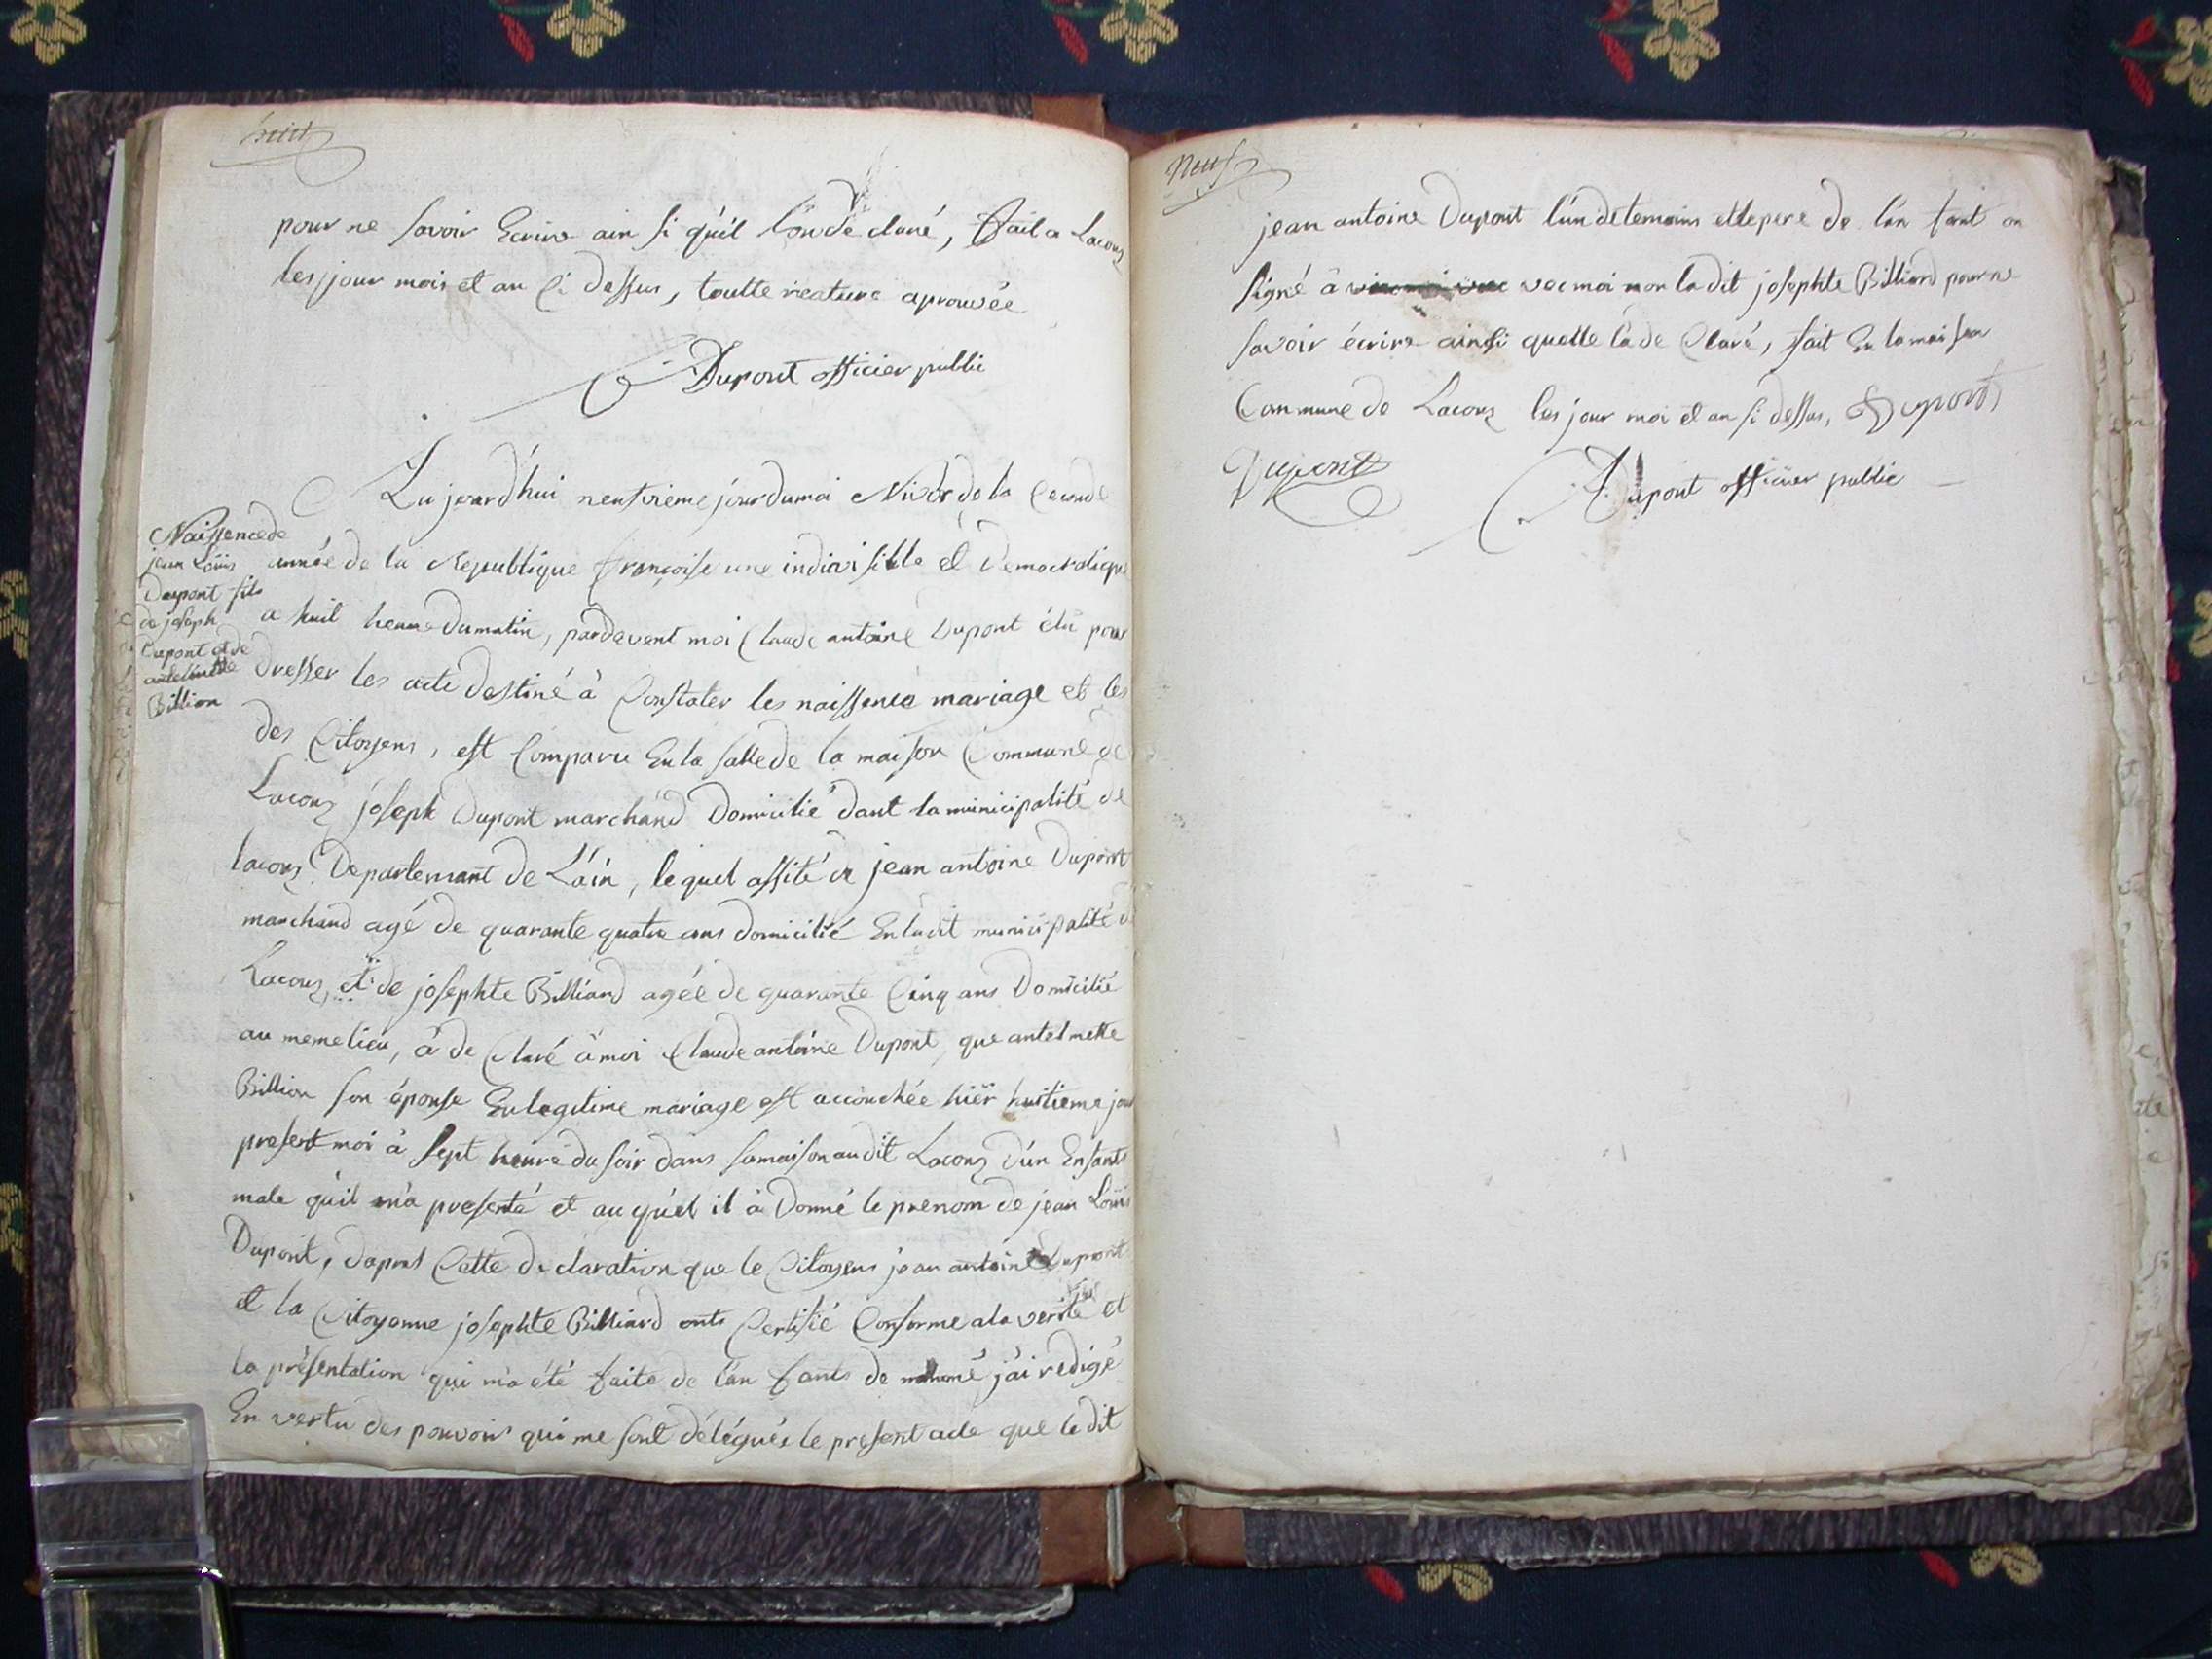 huit
pour ne savoir Ecrire ain si qu'il l'on de claré, fail a Lacoux
les jour mois et an Ci dessus, toutte reature aprouvée
Dupont officier public
Naissence de
jean Loüis
Dupont fils
de joseph
Dupont et de
antelmette
Billion
Au jourd'hui neufvieme jour du moi Nivôs de la Ceconde
année de la Republique françoise une indivisible et Democratique
a huil heure du matin, pardevent moi Claude antoine Dupont élu pour
dresser les acte destiné à Constater les naissence mariage et les
des Citoyens, est Comparu En la salle de la maison Commune de
Lacoux joseph Dupont marchand Domicilié dant la municipalité de
lacoux Departemant de L'ain, le quel assité de jean antoine Dupont
marchand agé de quarante quatre ans domicilié En ladit municipalité de
Lacoux, et de josephte Billiard agée de quarante Cinq ans Domicilié
au meme lieu, à de Claré à moi Claude antoine Dupont, que antelmette
Billion son épouse En legitime mariage est accouchée hiër huitieme jour
present moi à sept heure du soir dans sa maison au dit Lacoux d'ún Enfants
male qu'il m'a presenté et au quel il à Donné le prenom de jean Loüis
Dupont, dapres Cette declaration que le Citoyens jean antoine Dupont
et la Citoyenne josephte Billiard onts Certifié Conforme a la verité et
la présentation qui m'a été faite de l'an fants de nommé j'ai redigé
En vertu des pouvoirs qui me sont délégués le present acte que le dit
Neuf
jean antoine Dupont l'ún de temoins et le pere de l'an fant on
signé à vec moi non la dit josephte Billiard pour ne
savoir écrire ainsi quelle la de Claré, fait En la maison
Commune de Lacoux les jour moi et an si dessus, Dupont
Dupont
Dupont officier public